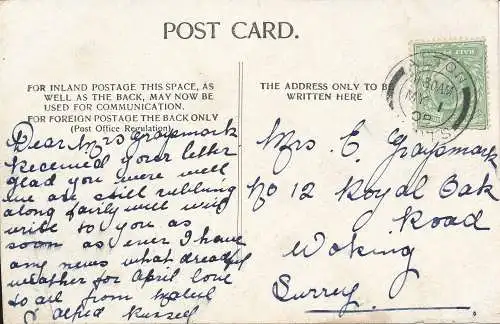 POST CARD.
FOR INLAND POSTAGE THIS SPACE, AS
WELL AS THE BACK, MAY NOW BE
USED FOR COMMUNICATION.
FOR FOREIGN POSTAGE THE BACK ONLY
(Post Office Regulation).
Dear Mrs Graysmark
Received your letter
glad you were well
we are still rubbing
along fairly well will
write to you as
soon as ever I have
any news what dreadful
weather for April love
to all from
Alfred Russell
THE ADDRESS ONLY TO BE
WRITTEN HERE
Mrs E. Graysmark
No 12 Royal Oak
Road
Woking
Surrey
ALTON
MY 1
08